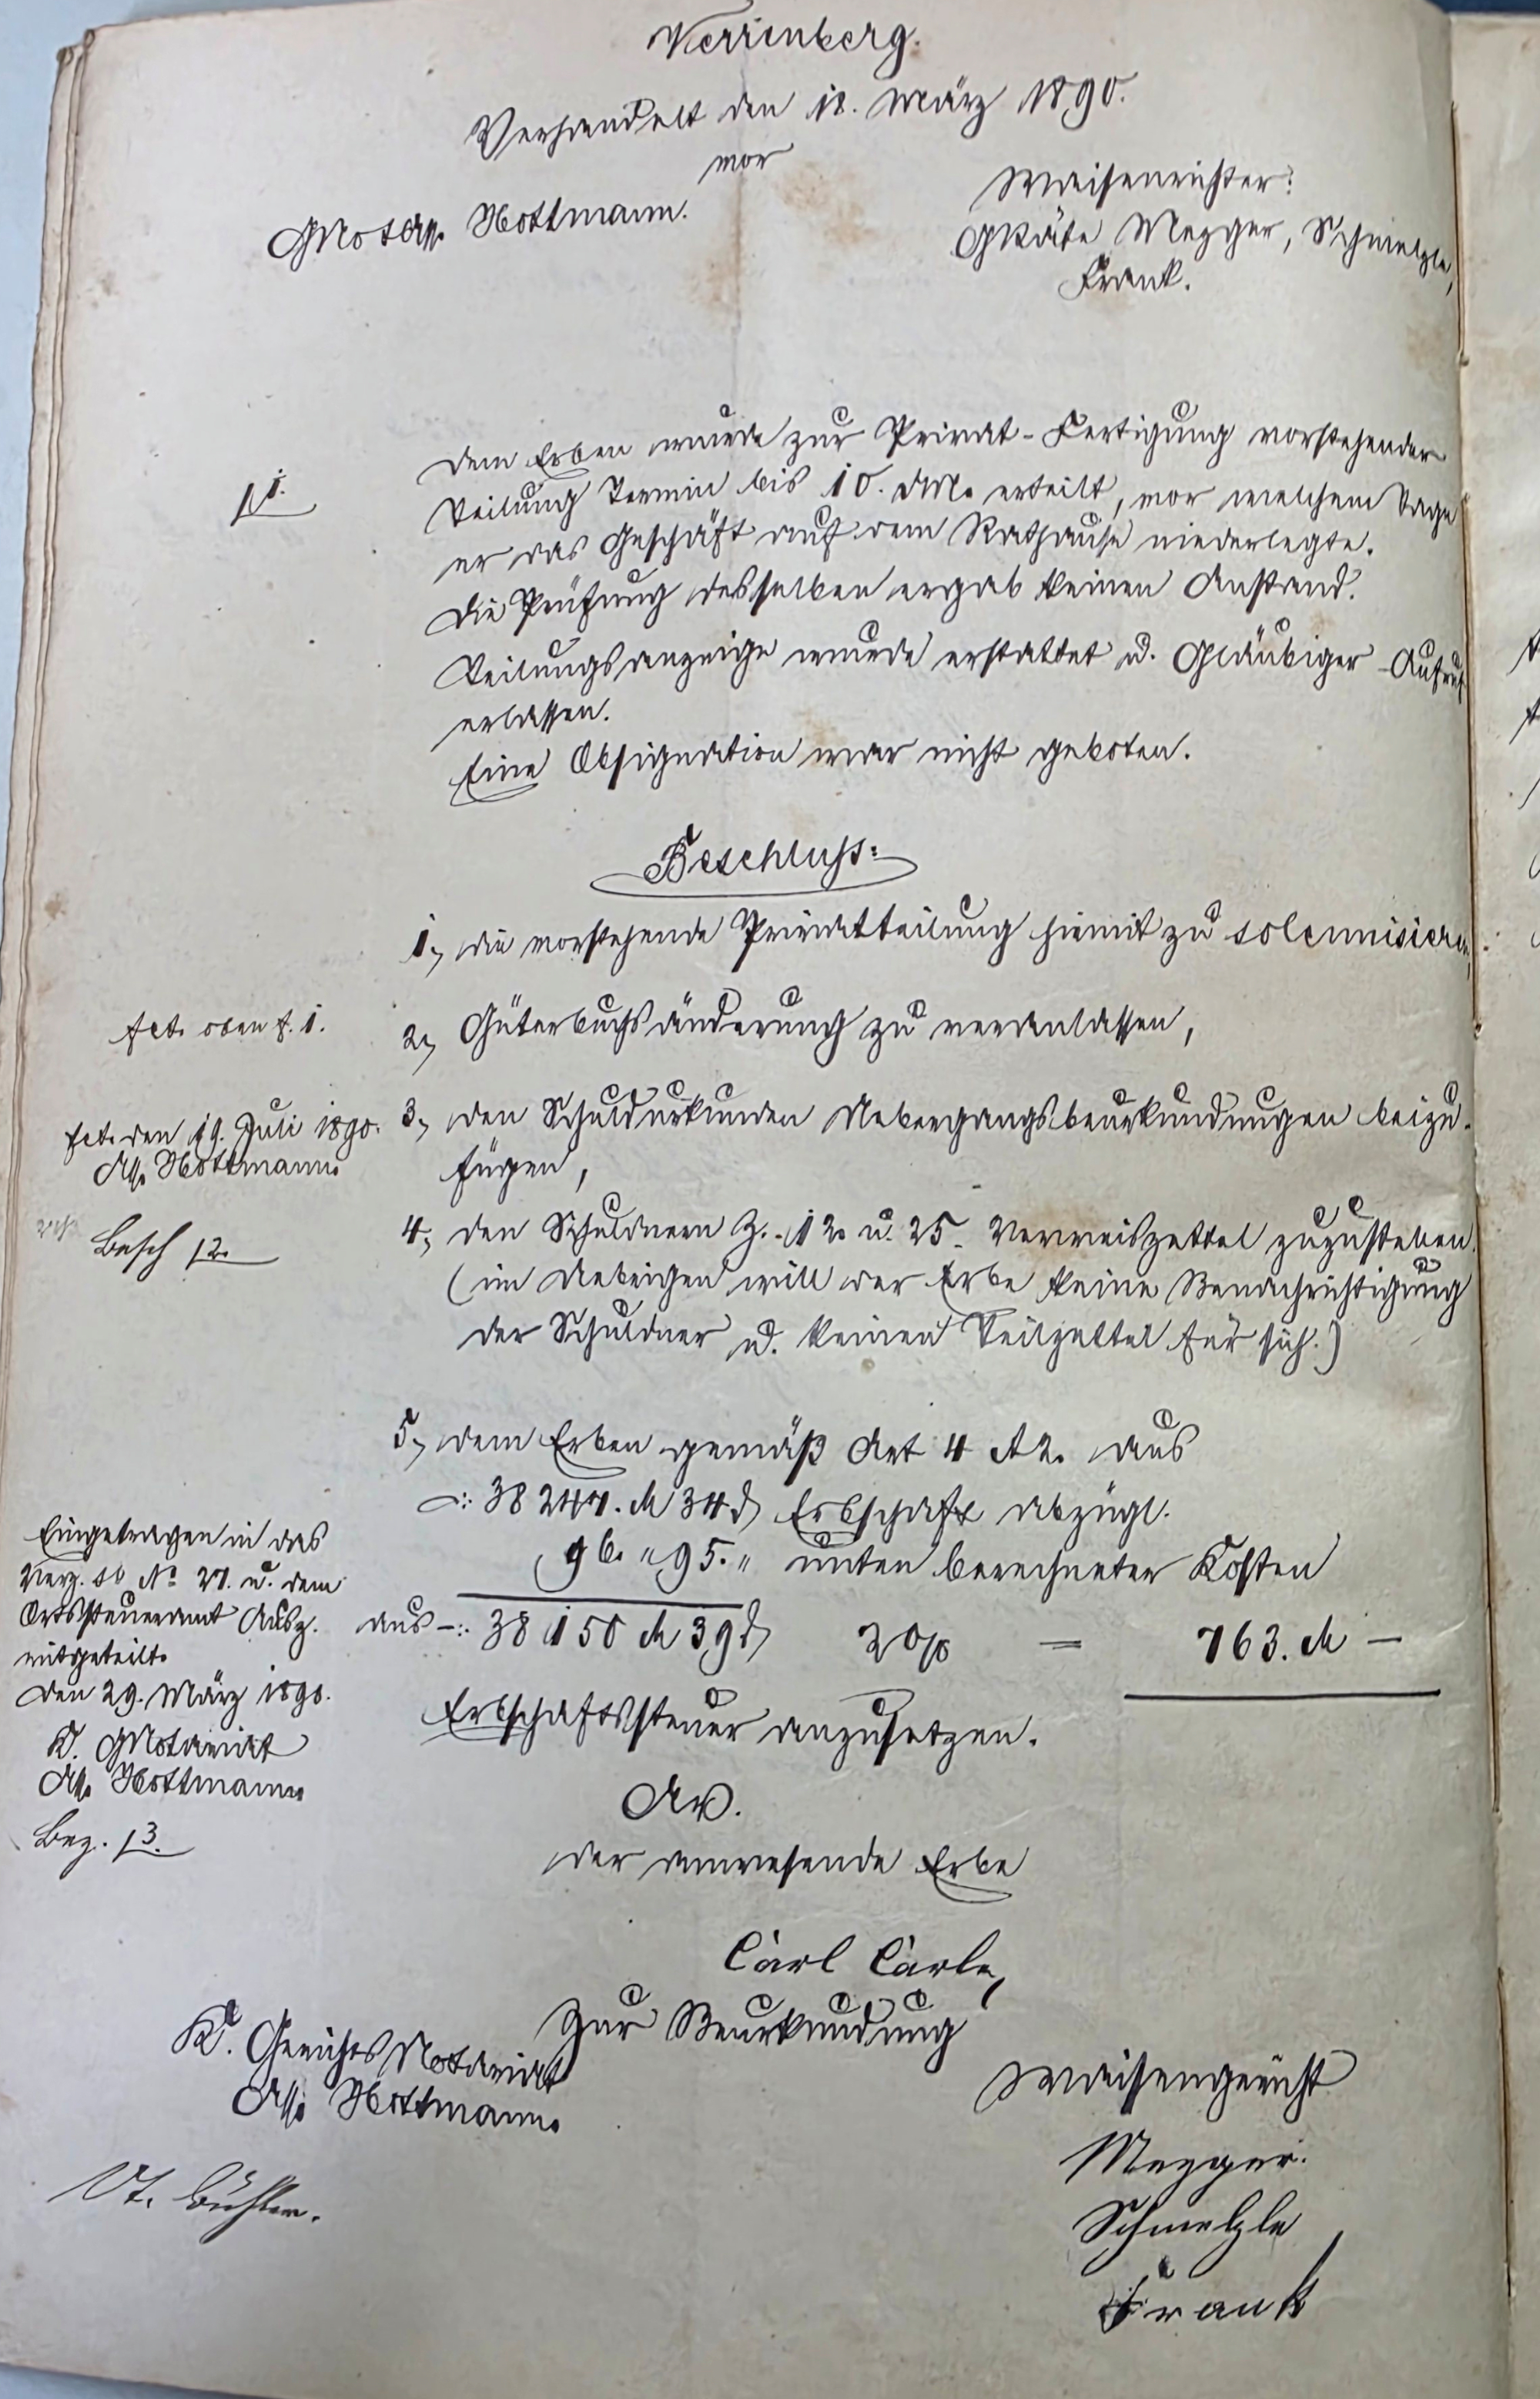 Verrenberg.
Verhandelt den 18. März 1890.
vor
GNotAss. Hottmann.
Waisenrichter:
GRäte Mezger, Schmelzle,
Frank.
/1.
Dem Erben wurde zur Privat-Fertigung vorstehender
Teilung Termin bis 10. dM. erteilt, vor welchem Tage
er das Geschäft auf dem Rathause niederlegte.
Die Prüfung desselben ergab keinen Anstand.
Teilungsanzeige wurde erstattet u. Gläubiger-Aufruf
erlassen.
Eine Obsignation war nicht geboten.
Beschluss:
1, die vorstehende Privatteilung hiemit zu solemnisieren,
fct. oben f. 1.
2, Güterbuchsänderung zu veranlassen,
fct. den 19. Juli 1890.
Ass. Hottmann.
3, den Schuldurkunden Uebergangsbeurkundungen beizu-
fügen,
Besch /2.
4, den Schuldnern Z. 12. u. 25. Verweiszettel zuzustellen.
(im Uebrigen will der Erbe keine Benachrichtigung
der Schuldner u. keinen Teilzettel für sich.)
5, dem Erben gemäß Art 4 A 2. aus
-:. 38 247. M 34 d Erbschaft abzügl.
96. " 95. " unten berechneter Kosten
aus -:. 38 150 M 39 d 2 0/0 = 763. M -
Erbschaftssteuer anzusetzen.
Eingetragen in das
Verz. sb No 27. u. dem
Ortssteueramt Ausz.
mitgeteilt.
Den 29. März 1890.
K. GNotariat
Ass. Hottmann.
Bez. /3.
Der anwesende Erbe
Carl Carle,
Zur Beurkundung
K. GerichtsNotariat
Ass. Hottmann.
Vt. Bühler.
Waisengericht
Mezger.
Schmelzle
Frank